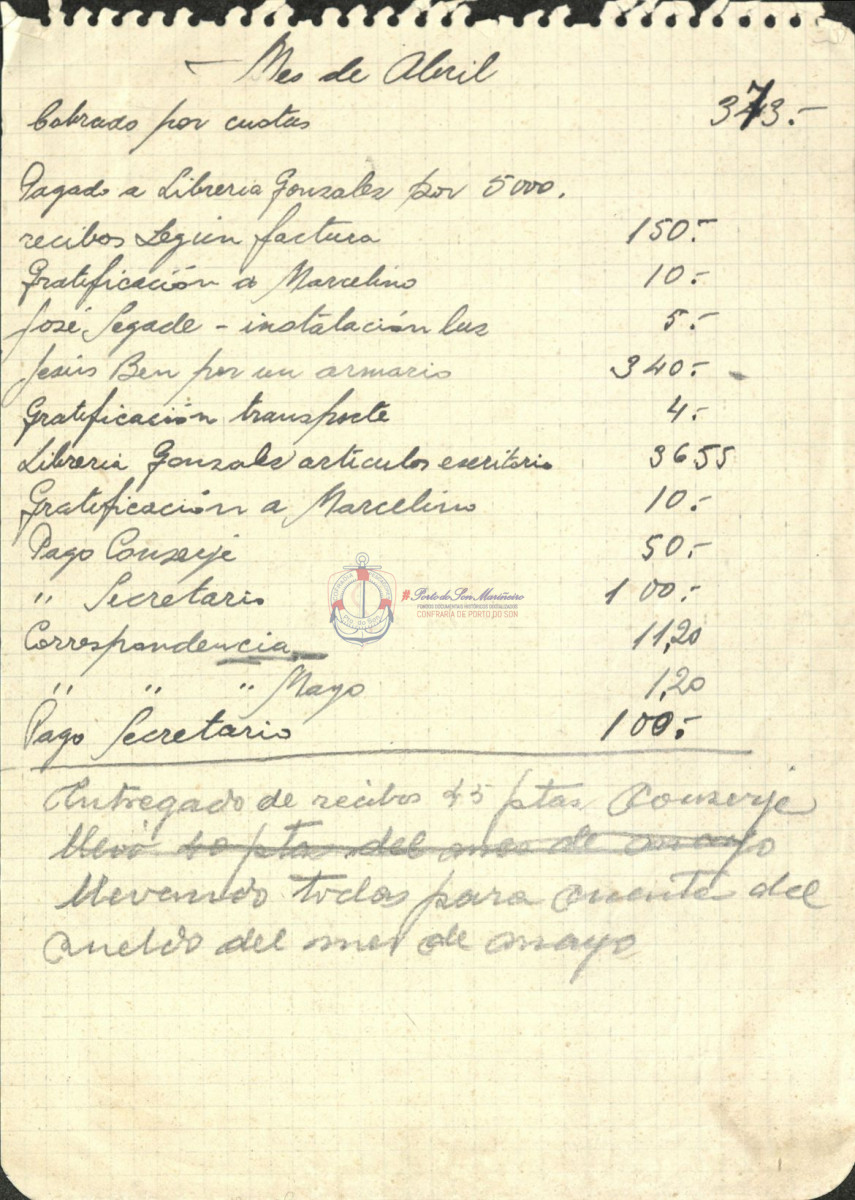 — Mes de Abril
Cobrado por cuotas 373.-
Pagado a Libreria Gonzalez por 5000.
recibos según factura 150.-
Gratificación a Marcelino 10.-
José Segade - instalación luz 5.-
Jesús Ben por un armario 340.-
Gratificación transporte 4.-
Libreria Gonzalez articulos escritorio 3655
Gratificación a Marcelino 10.-
Pago Conserje 50.-
" Secretario 100.-
COFRADIA PESCADORES
Pto. do Son
#PortodoSonMariñeiro
FONDOS DOCUMENTAIS HISTÓRICOS DIXITALIZADOS
CONFRARÍA DE PORTO DO SON
Correspondencia 11,20
" " " Mayo 1,20
Pago Secretario 100.-
Entregado de recibos 45 ptas Conserje
llevó 40 ptas del mes de mayo
llevando todas para cuenta del
sueldo del mes de mayo